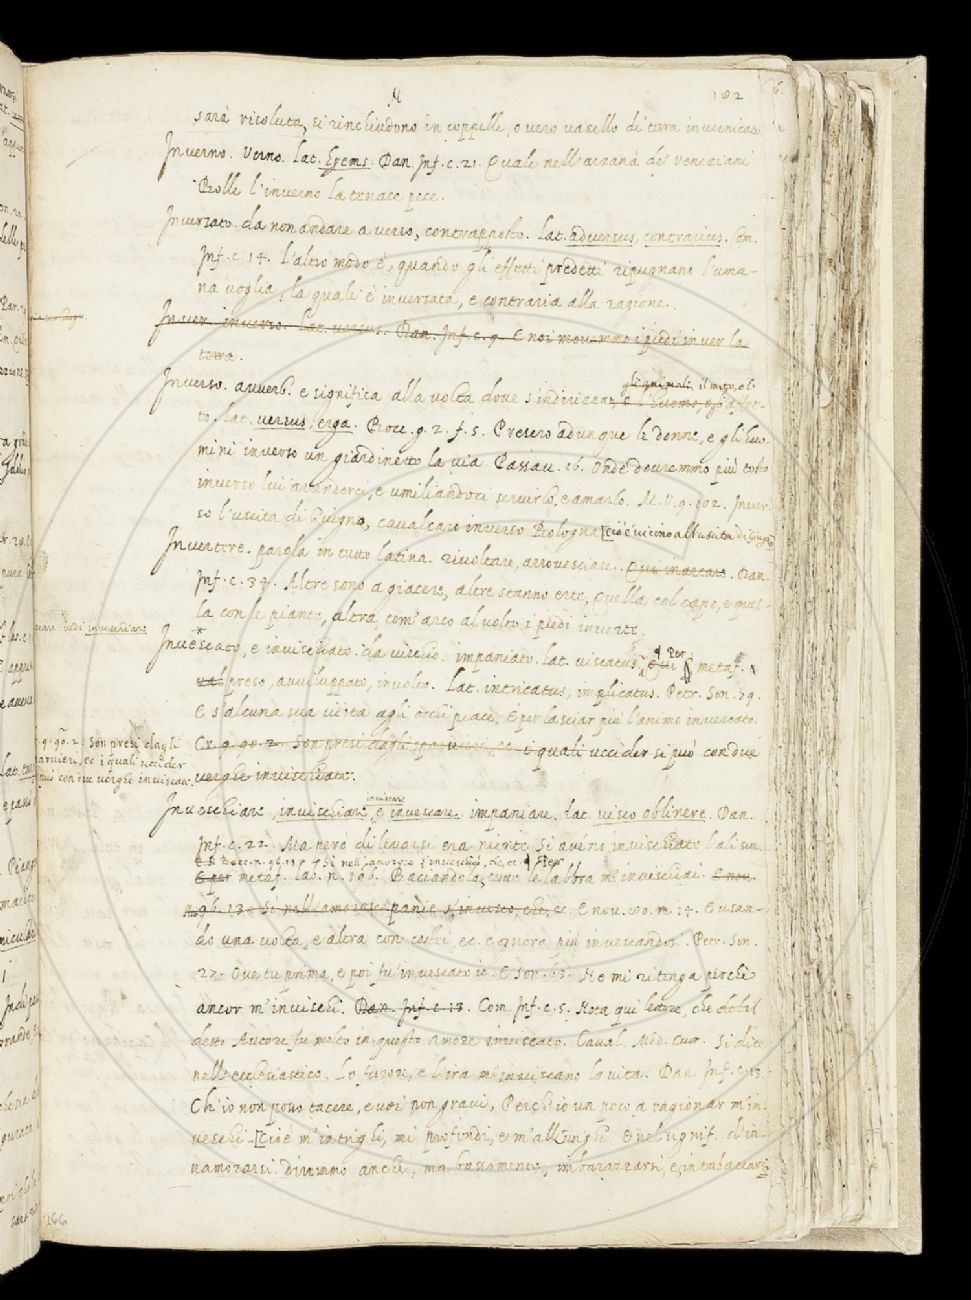 N
182
sarà risoluta, si rinchiudono in coppelle, o vero vasello di terra inverniciato
Inverno. Verno. Lat. hyems. Dan. Inf. c. 21. Quale nell'arzanà de' Veneziani
Bolle l'inverno la tenace pece.
Inversato. da non andare a verso, contrapposto. Lat. adversus, contrarius. Com.
Inf. c. 14. l'altro modo è, quando gli effetti predetti ripugnano l'uma-
na voglia, la quale è inversata, e contraria alla ragione.
Inver. inverso. Lat. versus. Dan. Inf. c. 9. E noi movemmo i piedi in ver la
terra.
gli animali, il moto, ol
Inverso. avverb. e significa alla volta dove s'indirizzano, e l'huomo, ogli affet-
to. Lat. versus, erga. Bocc. g. 2. f. 5. Presero adunque le donne, e gli huo
mini inverso un giardinetto la via. Passav. 16. Onde dovremmo più tosto
inverso lui arrenderci, e umiliandoci servirlo, e amarlo. M. V. 9. 102. Inver
so l'uscita di Giugno, cavalcare inverso Bologna [cioè vicino all'uscita di Giugno
Invertere. parola in tutto latina. rivoltare, arrovesciare. Dan.
Inf. c. 34. Altre sono a giacere, altre stanno erte, Quella col capo, e quel-
la con le piante, altra com'arco al volto i piedi inverte.
vedi invescare
Invescato, e invischiato. da vischio. impaniato. Lat. viscatus. Per metaf.
val preso, avviluppato, involto. Lat. intricatus, implicatus. Petr. Son. 79.
E s'alcuna sua vista agli occhi piace, È per lasciar più l'animo invescato.
g. 90. 2. Son presi dagli
sparvieri, ec. i quali uccider
si può con due verghe inviscate.
Cr. 9. 90. 2. Son presi dagli sparvieri, ec. i quali uccider si può con due
verghe invischiate.
inviscare
Inveschiare, invischiare, e invescare. impaniare. Lat. visco oblinere. Dan.
Inf. c. 22. Ma però di levarsi era niente Sì avéno invischiato l'ali sue.
E per metaf. Lab. n. 196. Baciandola, tutte le labbra m'invischiai. E nov.
96. 13. Sì nell'amorose panie s'invescò, che, ec. E nov. 80. n. 14. E usan-
do una volta, e altra con costui, ec. e ognora più invescandosi. Petr. Son.
22. Ove tu prima, e poi fu' invescato io. E Son. 13. Né mi ritenga perché
ancor m'inveschi. Dan. Inf. c. 13. Com. Inf. c. 5. Nota qui lettore, che
detto Autore fu molto in questo amore invescato. Caval. Med. cuor. Si dice
nell'ecclesiastico. Lo furore, e l'ira m'inviscano la vita. Dan. Inf. c. 13.
Ch'io non posso tacere, e voi non gravi, Perch'io un poco a ragionar m'in
veschi. [cioè m'intrighi, mi profondi, e m'allunghi. E nel signif. d'in
namorarsi diciamo anche, ma bassamente, imbarazzarsi, e, intabaccarsi
166